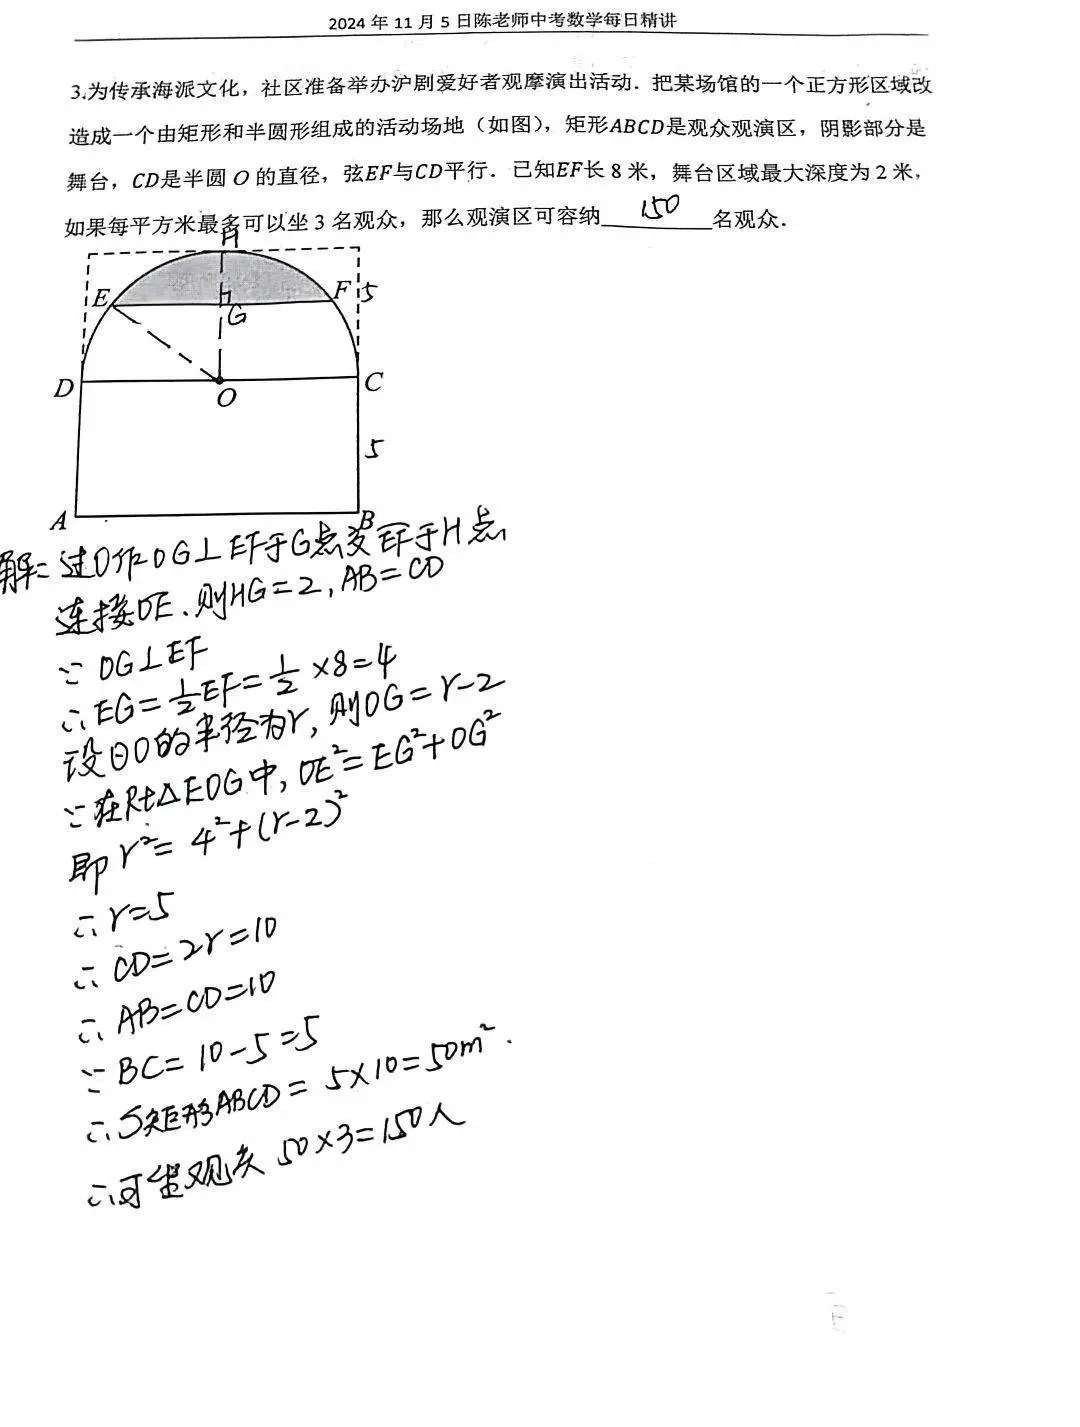 2024 年 11 月 5 日陈老师中考数学每日精讲
3.为传承海派文化，社区准备举办沪剧爱好者观摩演出活动．把某场馆的一个正方形区域改
造成一个由矩形和半圆形组成的活动场地（如图），矩形ABCD是观众观演区，阴影部分是
舞台，CD是半圆 O 的直径，弦EF与CD平行．已知EF长 8 米，舞台区域最大深度为 2 米，
如果每平方米最多可以坐 3 名观众，那么观演区可容纳 150 名观众．
H
E F 5
G
D C
O
5
A B
解：过O作OG⊥EF于G点交EF于H点
连接OE．则HG=2，AB=CD
∵ OG⊥EF
∴EG=½EF=½×8=4
设⊙O的半径为r，则OG=r-2
∵在Rt△EOG中，OE²=EG²+OG²
即 r²=4²+(r-2)²
∴r=5
∴CD=2r=10
∴AB=CD=10
∵BC=10-5=5
∴S矩形ABCD=5×10=50m².
∴可坐观众 50×3=150人